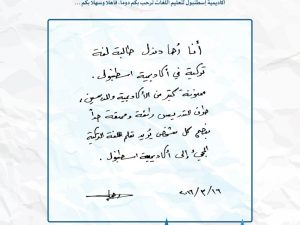 أكاديمية إسطنبول لتعليم اللغات ترحب بكم دوما، فأهلا وسهلا بكم...
أنا رُها دندل طالبة لغة
تركية في أكاديمية اسطنبول.
ممنونة كثير من الأكاديمية والمدرسين،
طرق التدريس رائعة وممتعة جداً
بنصح كل شخص يُريد تعلم اللغة التركية
المجيء إلى أكاديمية اسطنبول.
٢٠١٦/٣/١٦